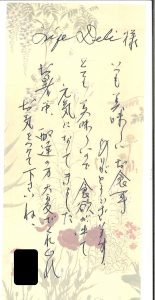 Life Deli 様
いつも美味しいお食事
ありがとうございます
とても美味しいので食欲が出て
元気になってきました
お暑い中、配達の方大変でしょうけれど
お気をつけて下さいね